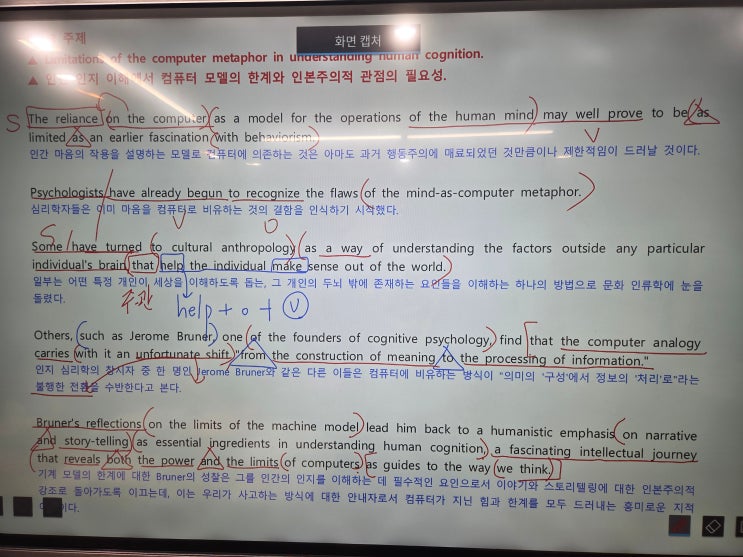 화면 캡처
주제
▲ Limitations of the computer metaphor in understanding human cognition.
▲ 인간 인지 이해에서 컴퓨터 모델의 한계와 인본주의적 관점의 필요성.
S The reliance on the computer as a model for the operations of the human mind may well prove to be as
limited as an earlier fascination with behaviorism.
V
인간 마음의 작용을 설명하는 모델로 컴퓨터에 의존하는 것은 아마도 과거 행동주의에 매료되었던 것만큼이나 제한적임이 드러날 것이다.
Psychologists have already begun to recognize the flaws of the mind-as-computer metaphor.
심리학자들은 이미 마음을 컴퓨터로 비유하는 것의 결함을 인식하기 시작했다.
S V O
Some have turned to cultural anthropology as a way of understanding the factors outside any particular
individual's brain that help the individual make sense out of the world.
일부는 어떤 특정 개인이 세상을 이해하도록 돕는, 그 개인의 두뇌 밖에 존재하는 요인들을 이해하는 하나의 방법으로 문화 인류학에 눈을
돌렸다.
주관 help + o + V
Others, such as Jerome Bruner, one of the founders of cognitive psychology, find that the computer analogy
carries with it an unfortunate shift "from the construction of meaning to the processing of information."
인지 심리학의 창시자 중 한 명인 Jerome Bruner와 같은 다른 이들은 컴퓨터에 비유하는 방식이 "의미의 '구성'에서 정보의 '처리'로"라는
불행한 전환을 수반한다고 본다.
Bruner's reflections on the limits of the machine model lead him back to a humanistic emphasis on narrative
and story-telling as essential ingredients in understanding human cognition, a fascinating intellectual journey
that reveals both the power and the limits of computers as guides to the way we think.
기계 모델의 한계에 대한 Bruner의 성찰은 그를 인간의 인지를 이해하는 데 필수적인 요인으로서 이야기와 스토리텔링에 대한 인본주의적
강조로 돌아가도록 이끄는데, 이는 우리가 사고하는 방식에 대한 안내자로서 컴퓨터가 지닌 힘과 한계를 모두 드러내는 흥미로운 지적
이다.